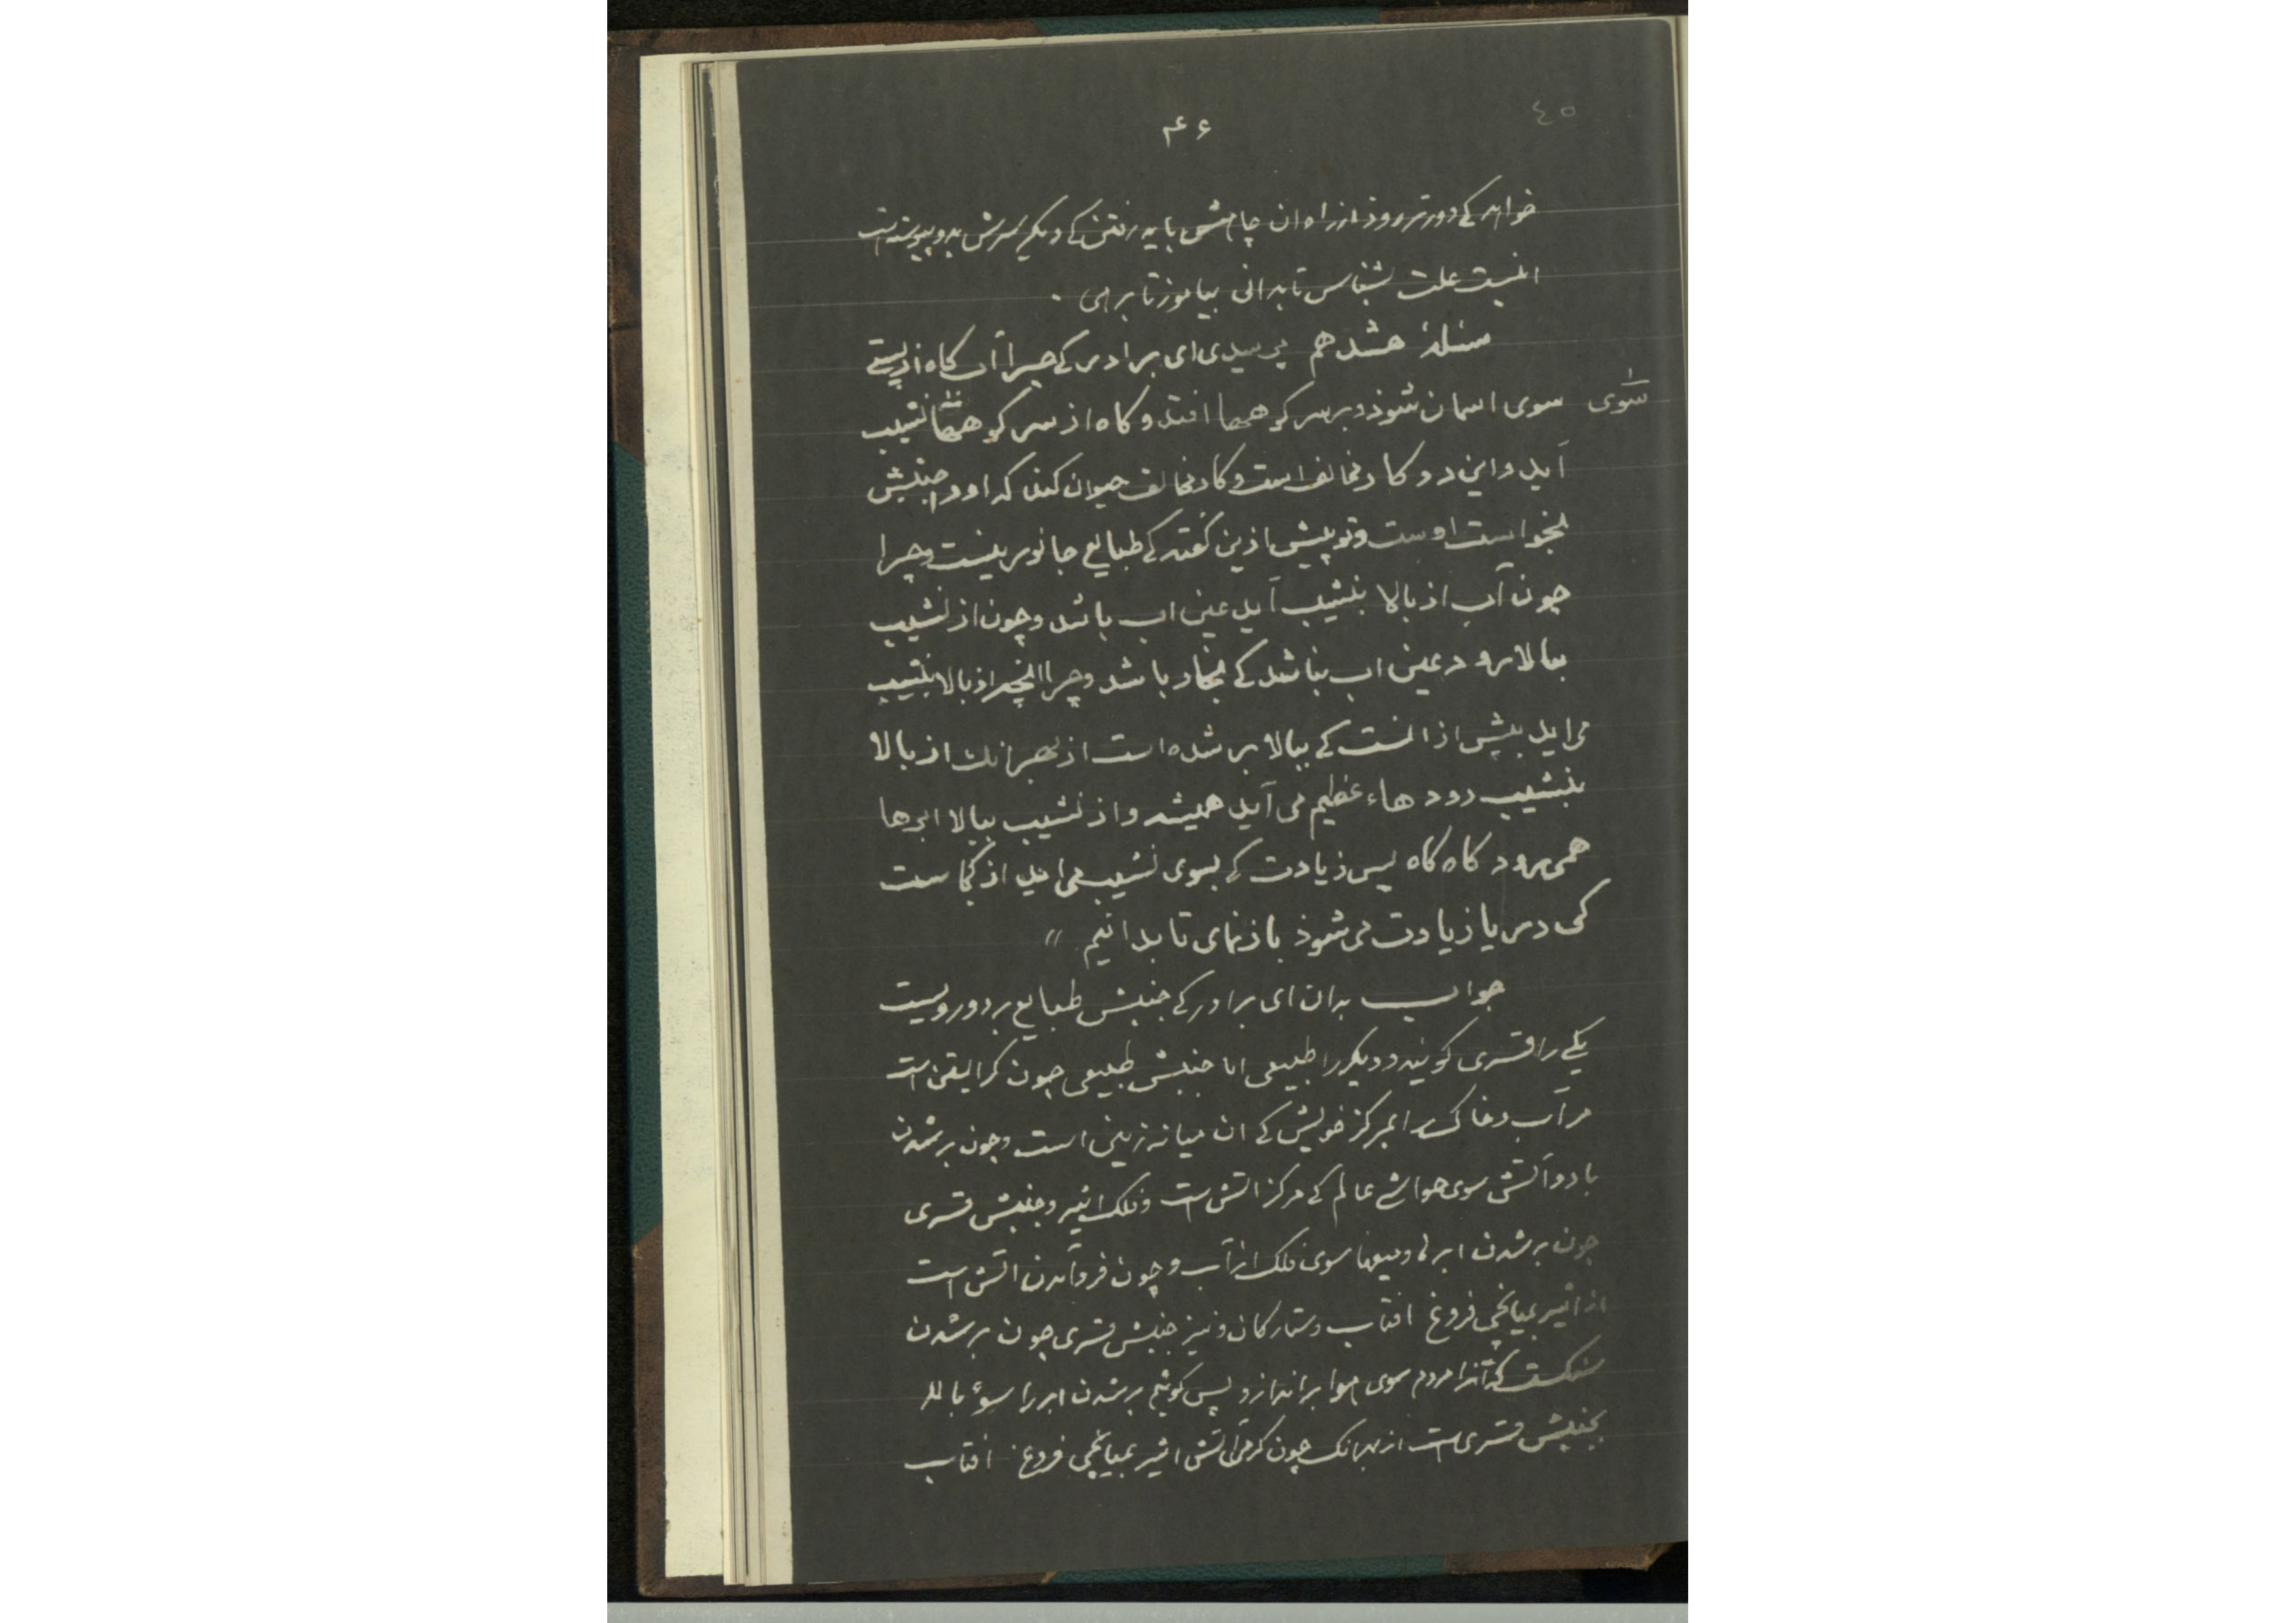 ٤٥
۴۶
خواهد کے دورتر روذ از راه ان چا هش باید رفتن کے دیگر سرش بدو پیوسته است
اینست علت بشناس تا بدانی بیاموز تا برهی .
مسئلهٔ هشدهم پرسیدی ای برادر کے چرا آب کاه از پستے
سوی
سوی اسمان شوذ و بر سر کوهها افتد و کاه از سر کوهها بنشیب
آید و این دو کار مخالف است و کار مخالف حیوان کند که اورا جنبش
بخواست اوست و تو پیش ازین گفته کے طبایع جانور نیست و چرا
چون آب از بالا بنشیب آید عین اب باشد و چون از نشیب
ببالا رود عین اب نباشد کے بخار باشد و چرا انچه از بالا بنشیب
می اید بیش از انست کے ببالا بر شده است از بهر انك از بالا
بنشیب رودهاء عظیم می آید همیشه و از نشیب ببالا ابرها
همی رود کاه کاه پس زیادت کے بسوی نشیب می اید از کجاست
کی دریا زیادت می شوذ باز نمای تا بدانیم "
جواب بدان ای برادر کے جنبش طبایع بر دو رویست
یکے را قسری کویند و دیکر را طبیعی اما جنبش طبیعی چون کرایستن است
مر آب و خاک را بمرکز خویش کے ان میانه زمین است و چون بر شدن
باد و آتش سوی حواشے عالم کے مرکز اتش است و فلک اثیر و جنبش قسری
چون بر شدن ابرها و میغها سوی فلک از آب و چون فرو آمدن اتش است
از اثیر بمیانجی فروغ افتاب و ستارکان و نیز جنبش قسری چون بر شدن
سنکست که آنرا مردم سوی هوا بر اندازد پس کوئیم بر شدن ابر را سوی بالا
بجنبش قسری است از بهر انک چون کرمی آتش اثیر بمیانجی فروغ افتاب